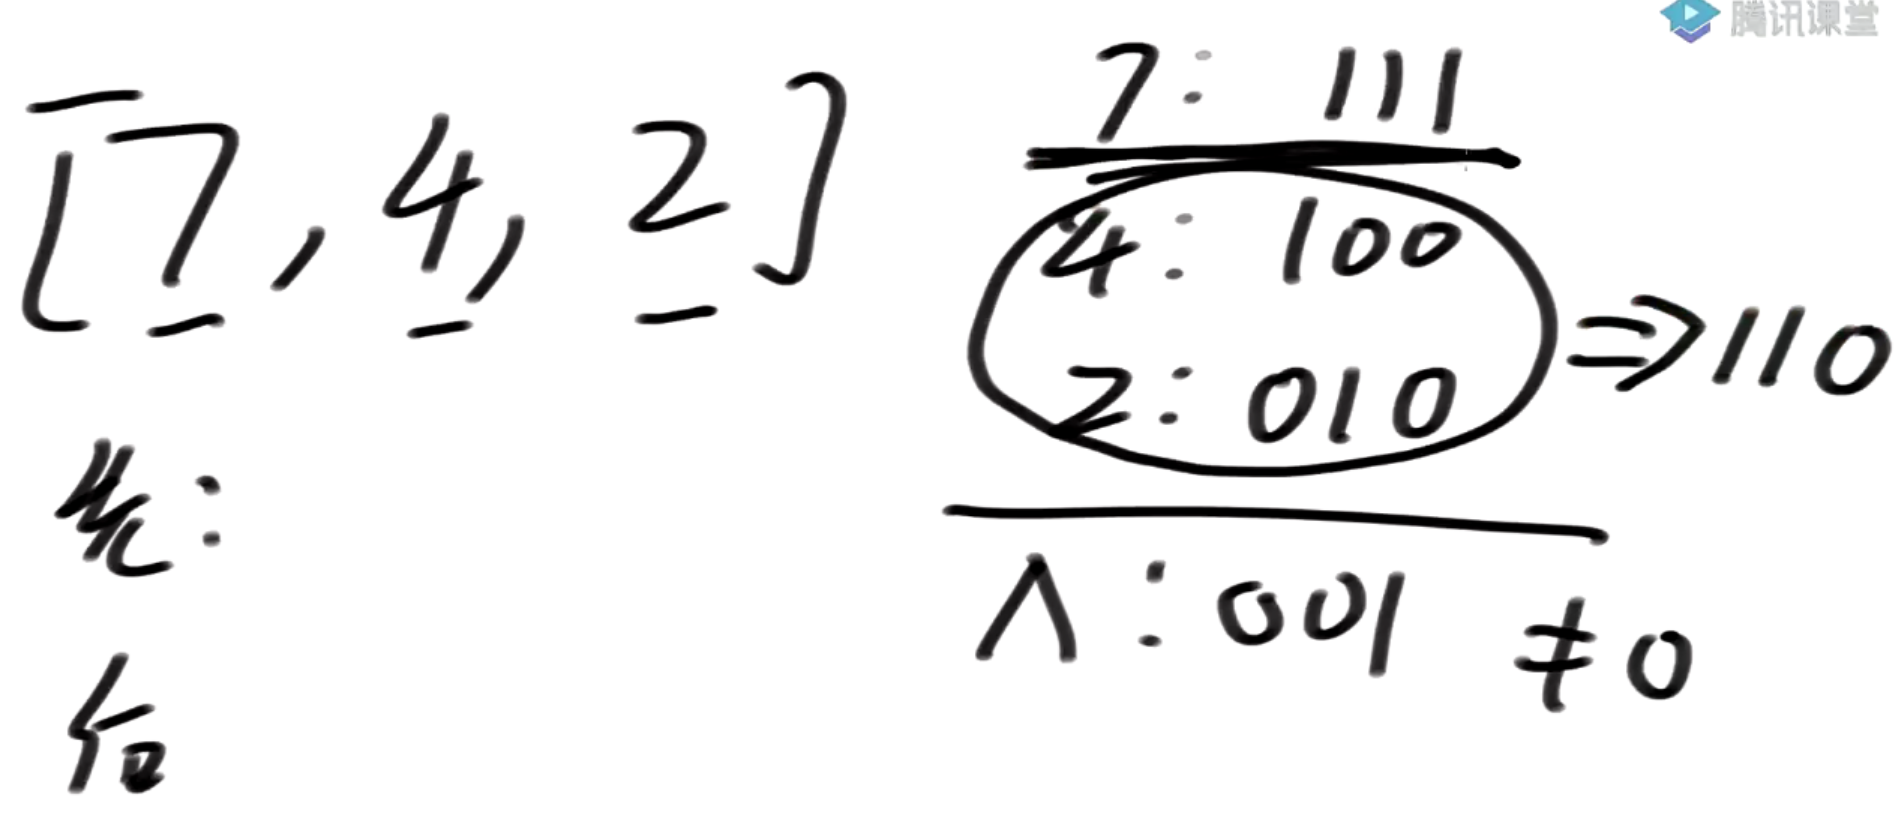 腾讯课堂
[7, 4, 2]
7: 111
4: 100
2: 010
⇒110
先:
后
∧: 001 ≠0